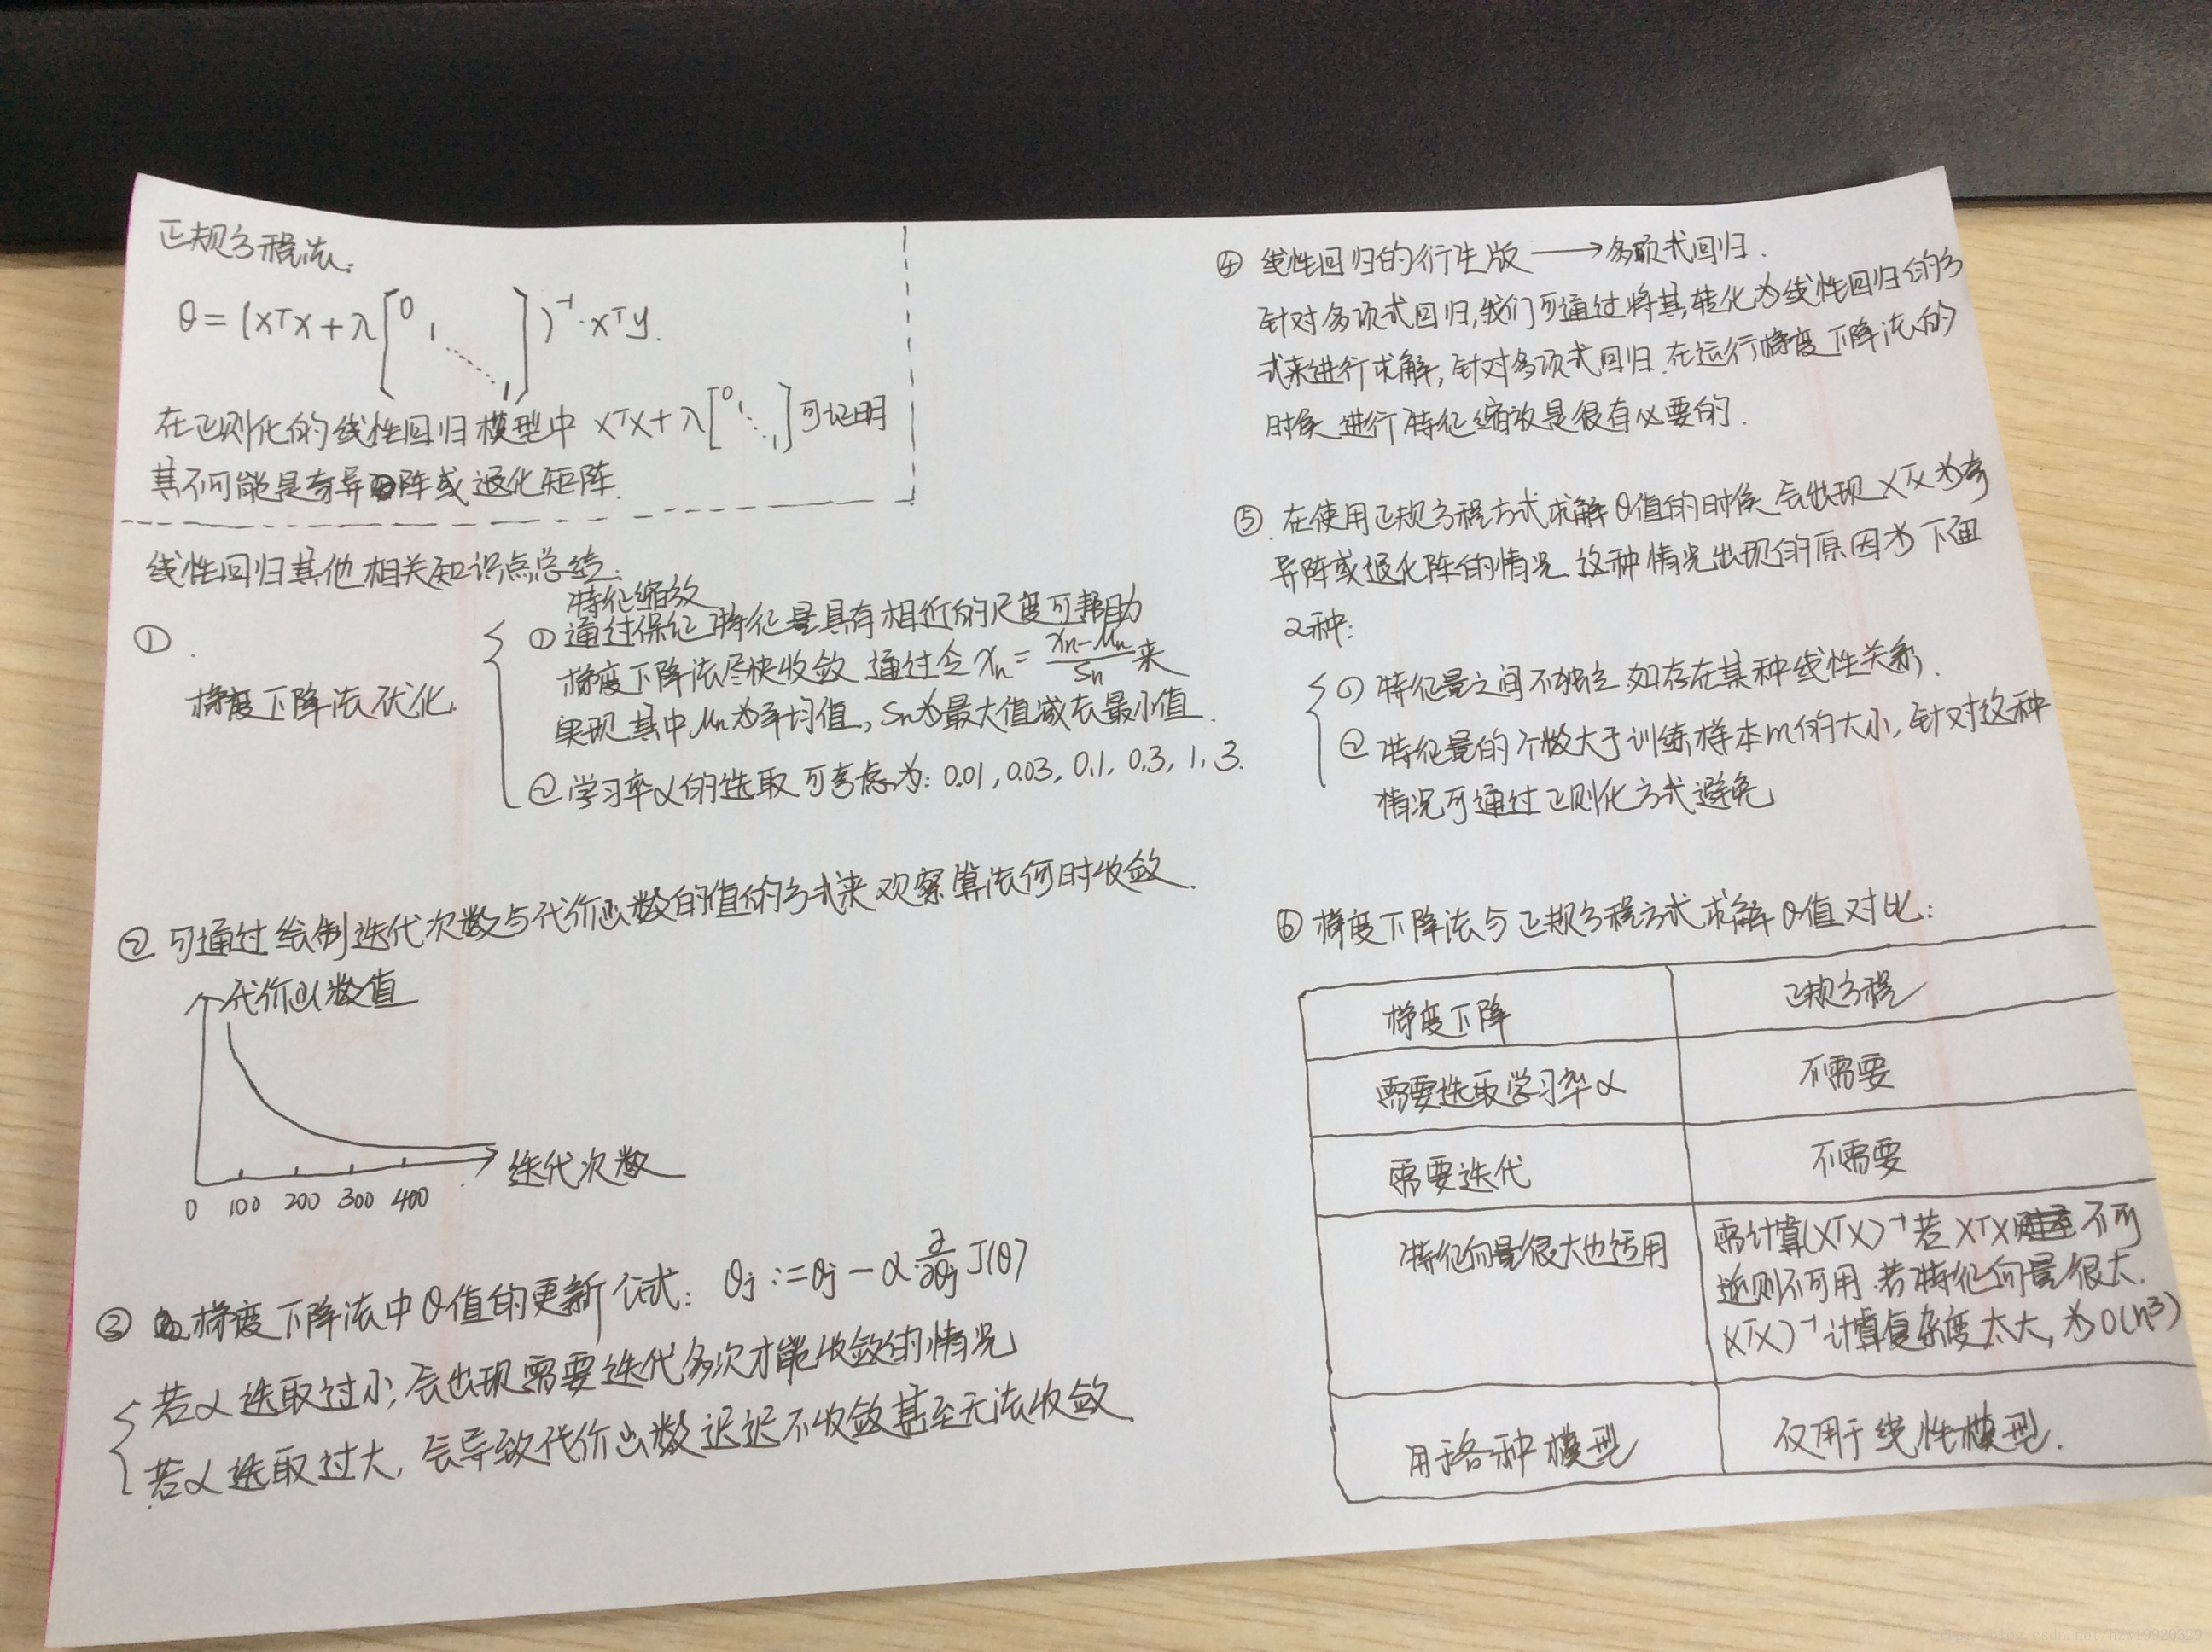 正规方程法:
θ = (XᵀX + λ[0 1 ⋱ 1])⁻¹ · Xᵀy.
在正则化的线性回归模型中 XᵀX + λ[0 1 ⋱ 1]可证明
其不可能是奇异阵或退化矩阵.
线性回归其他相关知识点总结:
①
梯度下降法优化
特征缩放
① 通过保证特征量具有相近的尺度可帮助
梯度下降法尽快收敛 通过令 xn = (xn-μn)/Sn 来
实现 其中μn为平均值, Sn为最大值减去最小值.
② 学习率α的选取 可考虑为: 0.01, 0.03, 0.1, 0.3, 1, 3.
② 可通过绘制迭代次数与代价函数的值的方式来观察算法何时收敛.
代价函数值
0 100 200 300 400
迭代次数
③ 梯度下降法中θ值的更新公式: θj := θj - α ∂/∂θj J(θ)
若α选取过小, 会出现需要迭代多次才能收敛的情况
若α选取过大, 会导致代价函数迟迟不收敛甚至无法收敛.
④ 线性回归的衍生版 → 多项式回归.
针对多项式回归, 我们可通过将其转化为线性回归的方
式来进行求解, 针对多项式回归 在运行梯度下降法的
时候 进行特征缩放是很有必要的.
⑤ 在使用正规方程方式求解θ值的时候, 会出现XᵀX为奇
异阵或退化阵的情况 这种情况出现的原因为下面
2种:
① 特征量之间不独立 如存在某种线性关系,
② 特征量的个数大于训练样本m的大小, 针对这种
情况可通过正则化方式避免
⑥ 梯度下降法与正规方程方式求解θ值对比:
梯度下降 正规方程
需要选取学习率α 不需要
需要迭代 不需要
特征向量很大也适用 需计算(XᵀX)⁻¹ 若XᵀX不可
逆则不可用 若特征向量很大.
(XᵀX)⁻¹计算复杂度太大, 为O(n³)
用各种模型 仅用于线性模型.